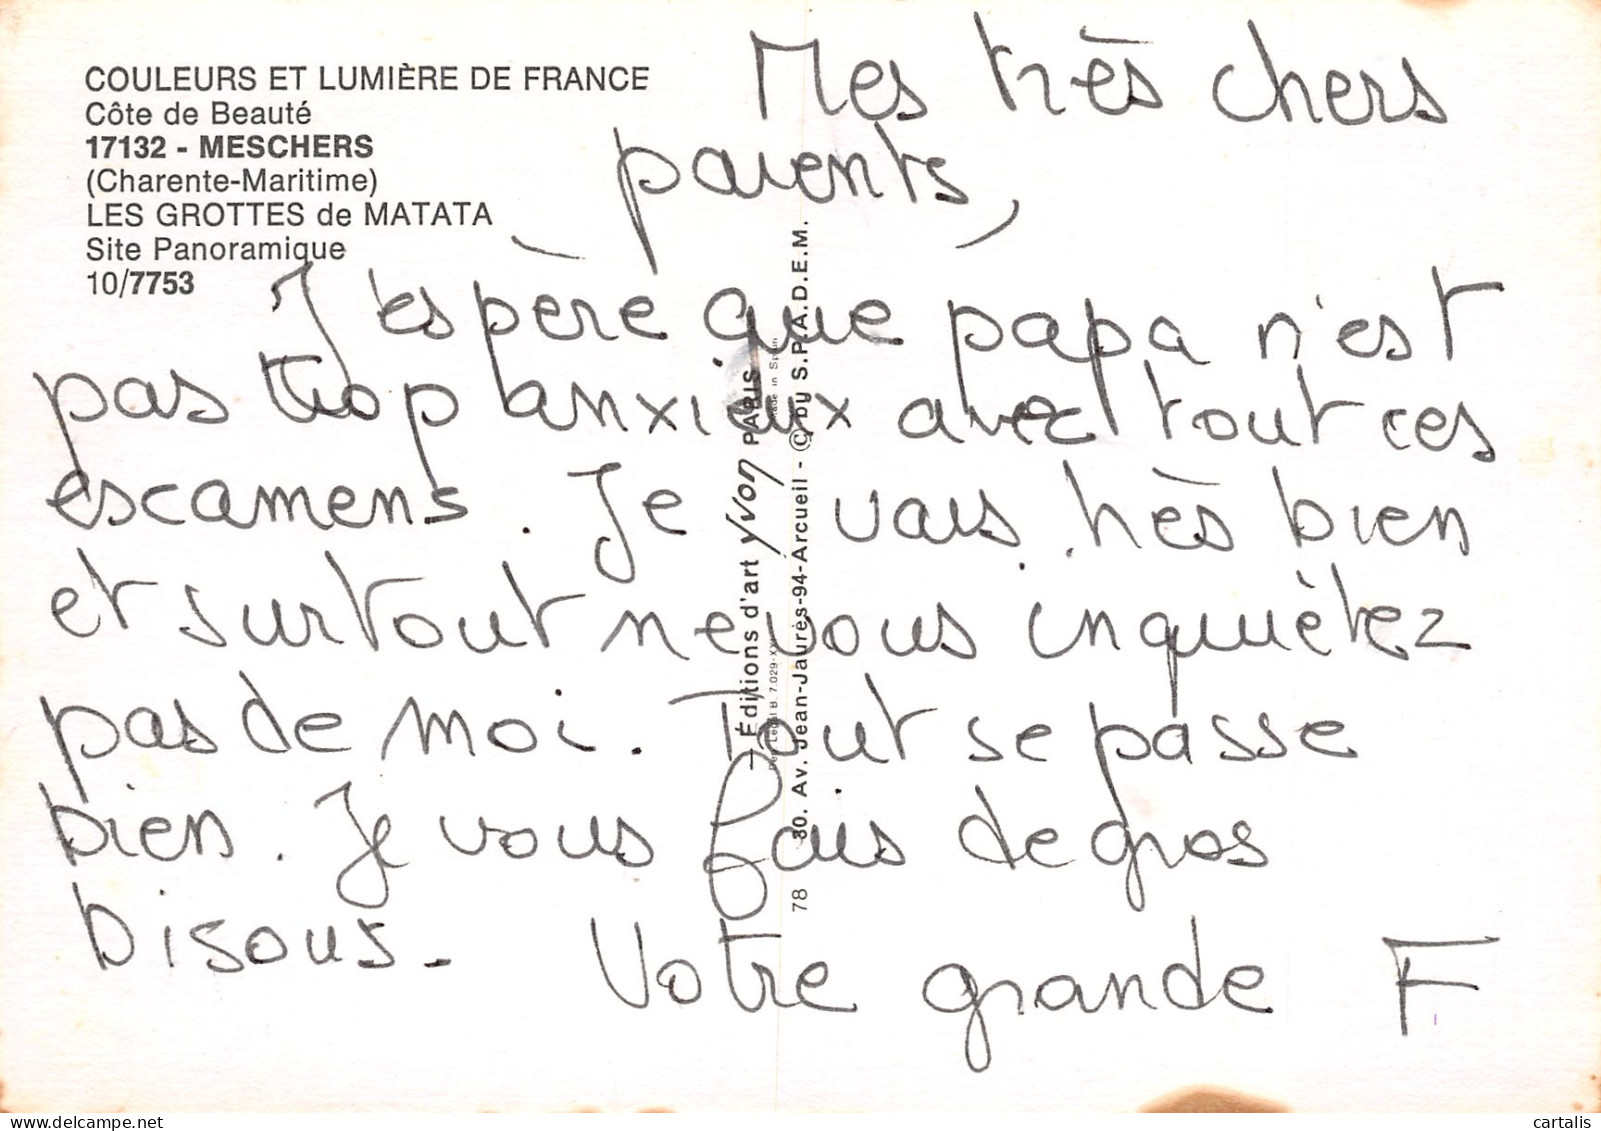 COULEURS ET LUMIÈRE DE FRANCE
Côte de Beauté
17132 - MESCHERS
(Charente-Maritime)
LES GROTTES de MATATA
Site Panoramique
10/7753
Mes très chers
parents,
J'espère que papa n'est
pas trop anxieux avec tout ces
escamens. Je vais très bien
et surtout ne vous inquiétez
pas de moi. Tout se passe
bien. Je vous fais de gros
bisous.
Votre grande F
Éditions d'art yvon PARIS
Made in Spain
78 30. Av. Jean-Jaurès-94-Arcueil - © by S.P.A.D.E.M.
cartalis.com